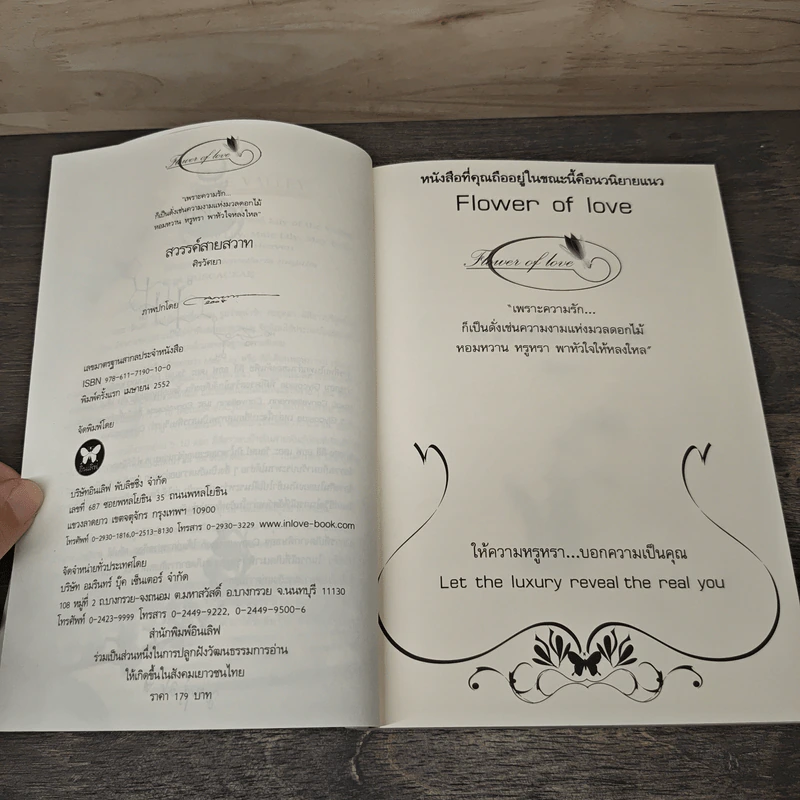 Flower of love
"เพราะความรัก...
ก็เป็นดั่งเช่นความงามแห่งมวลดอกไม้
หอมหวาน หรูหรา พาหัวใจหลงใหล"
สวรรค์สายสวาท
ศิรวัศยา
ภาพปกโดย
เลขมาตรฐานสากลประจำหนังสือ
ISBN 978-611-7190-10-0
พิมพ์ครั้งแรก เมษายน 2552
จัดพิมพ์โดย
อินเลิฟ
บริษัทอินเลิฟ พับลิชชิ่ง จำกัด
เลขที่ 687 ซอยพหลโยธิน 35 ถนนพหลโยธิน
แขวงลาดยาว เขตจตุจักร กรุงเทพฯ 10900
โทรศัพท์ 0-2930-1816,0-2513-8130 โทรสาร 0-2930-3229 www.inlove-book.com
จัดจำหน่ายทั่วประเทศโดย
บริษัท อมรินทร์ บุ๊ค เซ็นเตอร์ จำกัด
108 หมู่ที่ 2 ถ.บางกรวย-จงถนอม ต.มหาสวัสดิ์ อ.บางกรวย จ.นนทบุรี 11130
โทรศัพท์ 0-2423-9999 โทรสาร 0-2449-9222, 0-2449-9500-6
สำนักพิมพ์อินเลิฟ
ร่วมเป็นส่วนหนึ่งในการปลูกฝังวัฒนธรรมการอ่าน
ให้เกิดขึ้นในสังคมเยาวชนไทย
ราคา 179 บาท
หนังสือที่คุณถืออยู่ในขณะนี้คือนวนิยายแนว
Flower of love
Flower of love
"เพราะความรัก...
ก็เป็นดั่งเช่นความงามแห่งมวลดอกไม้
หอมหวาน หรูหรา พาหัวใจให้หลงใหล"
ให้ความหรูหรา...บอกความเป็นคุณ
Let the luxury reveal the real you